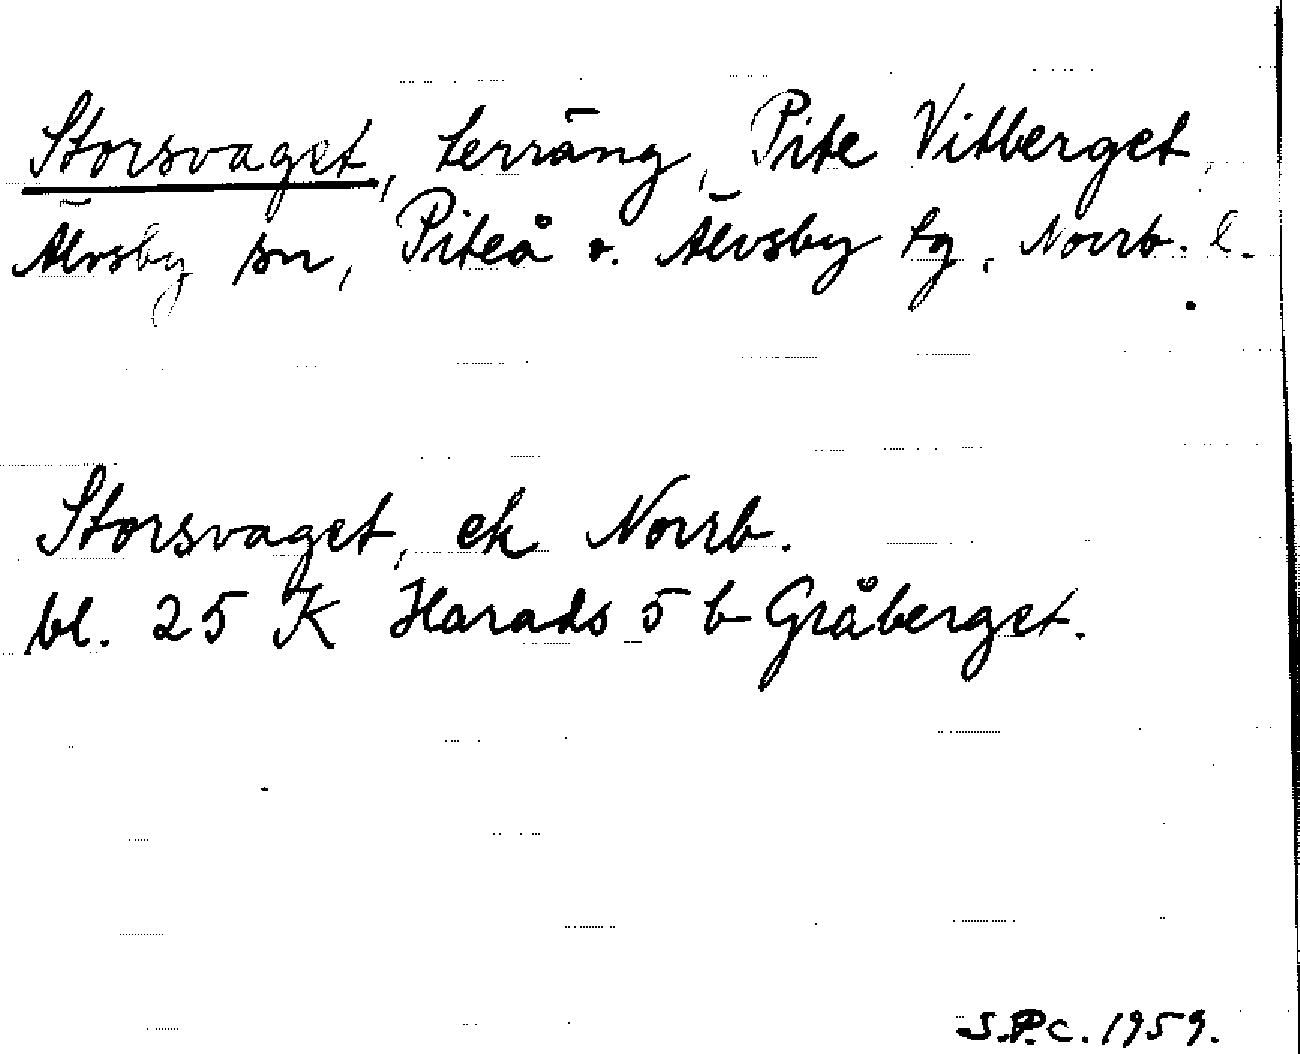 Storsvaget, terräng, Pite Vitberget,
Älvsby sn, Piteå o. Älvsby tg, Norrb. l.
Storsvaget, ek Norrb.
bl. 25 K Harads 5 b Gråberget.
S.P.C. 1959.